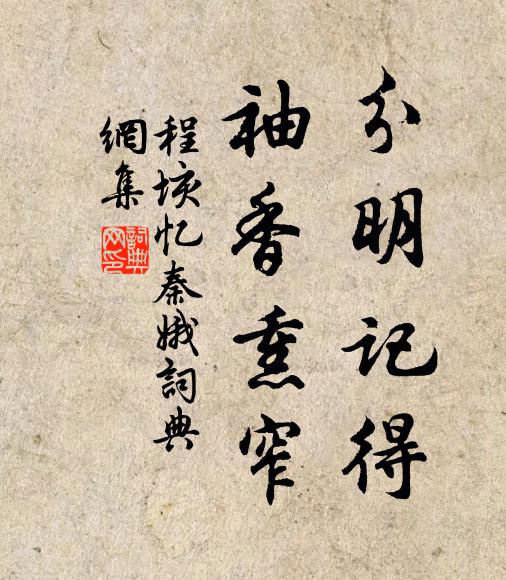 分明記得
袖香熏窄
程垓忆秦娥詞典
網集
詞典
网印